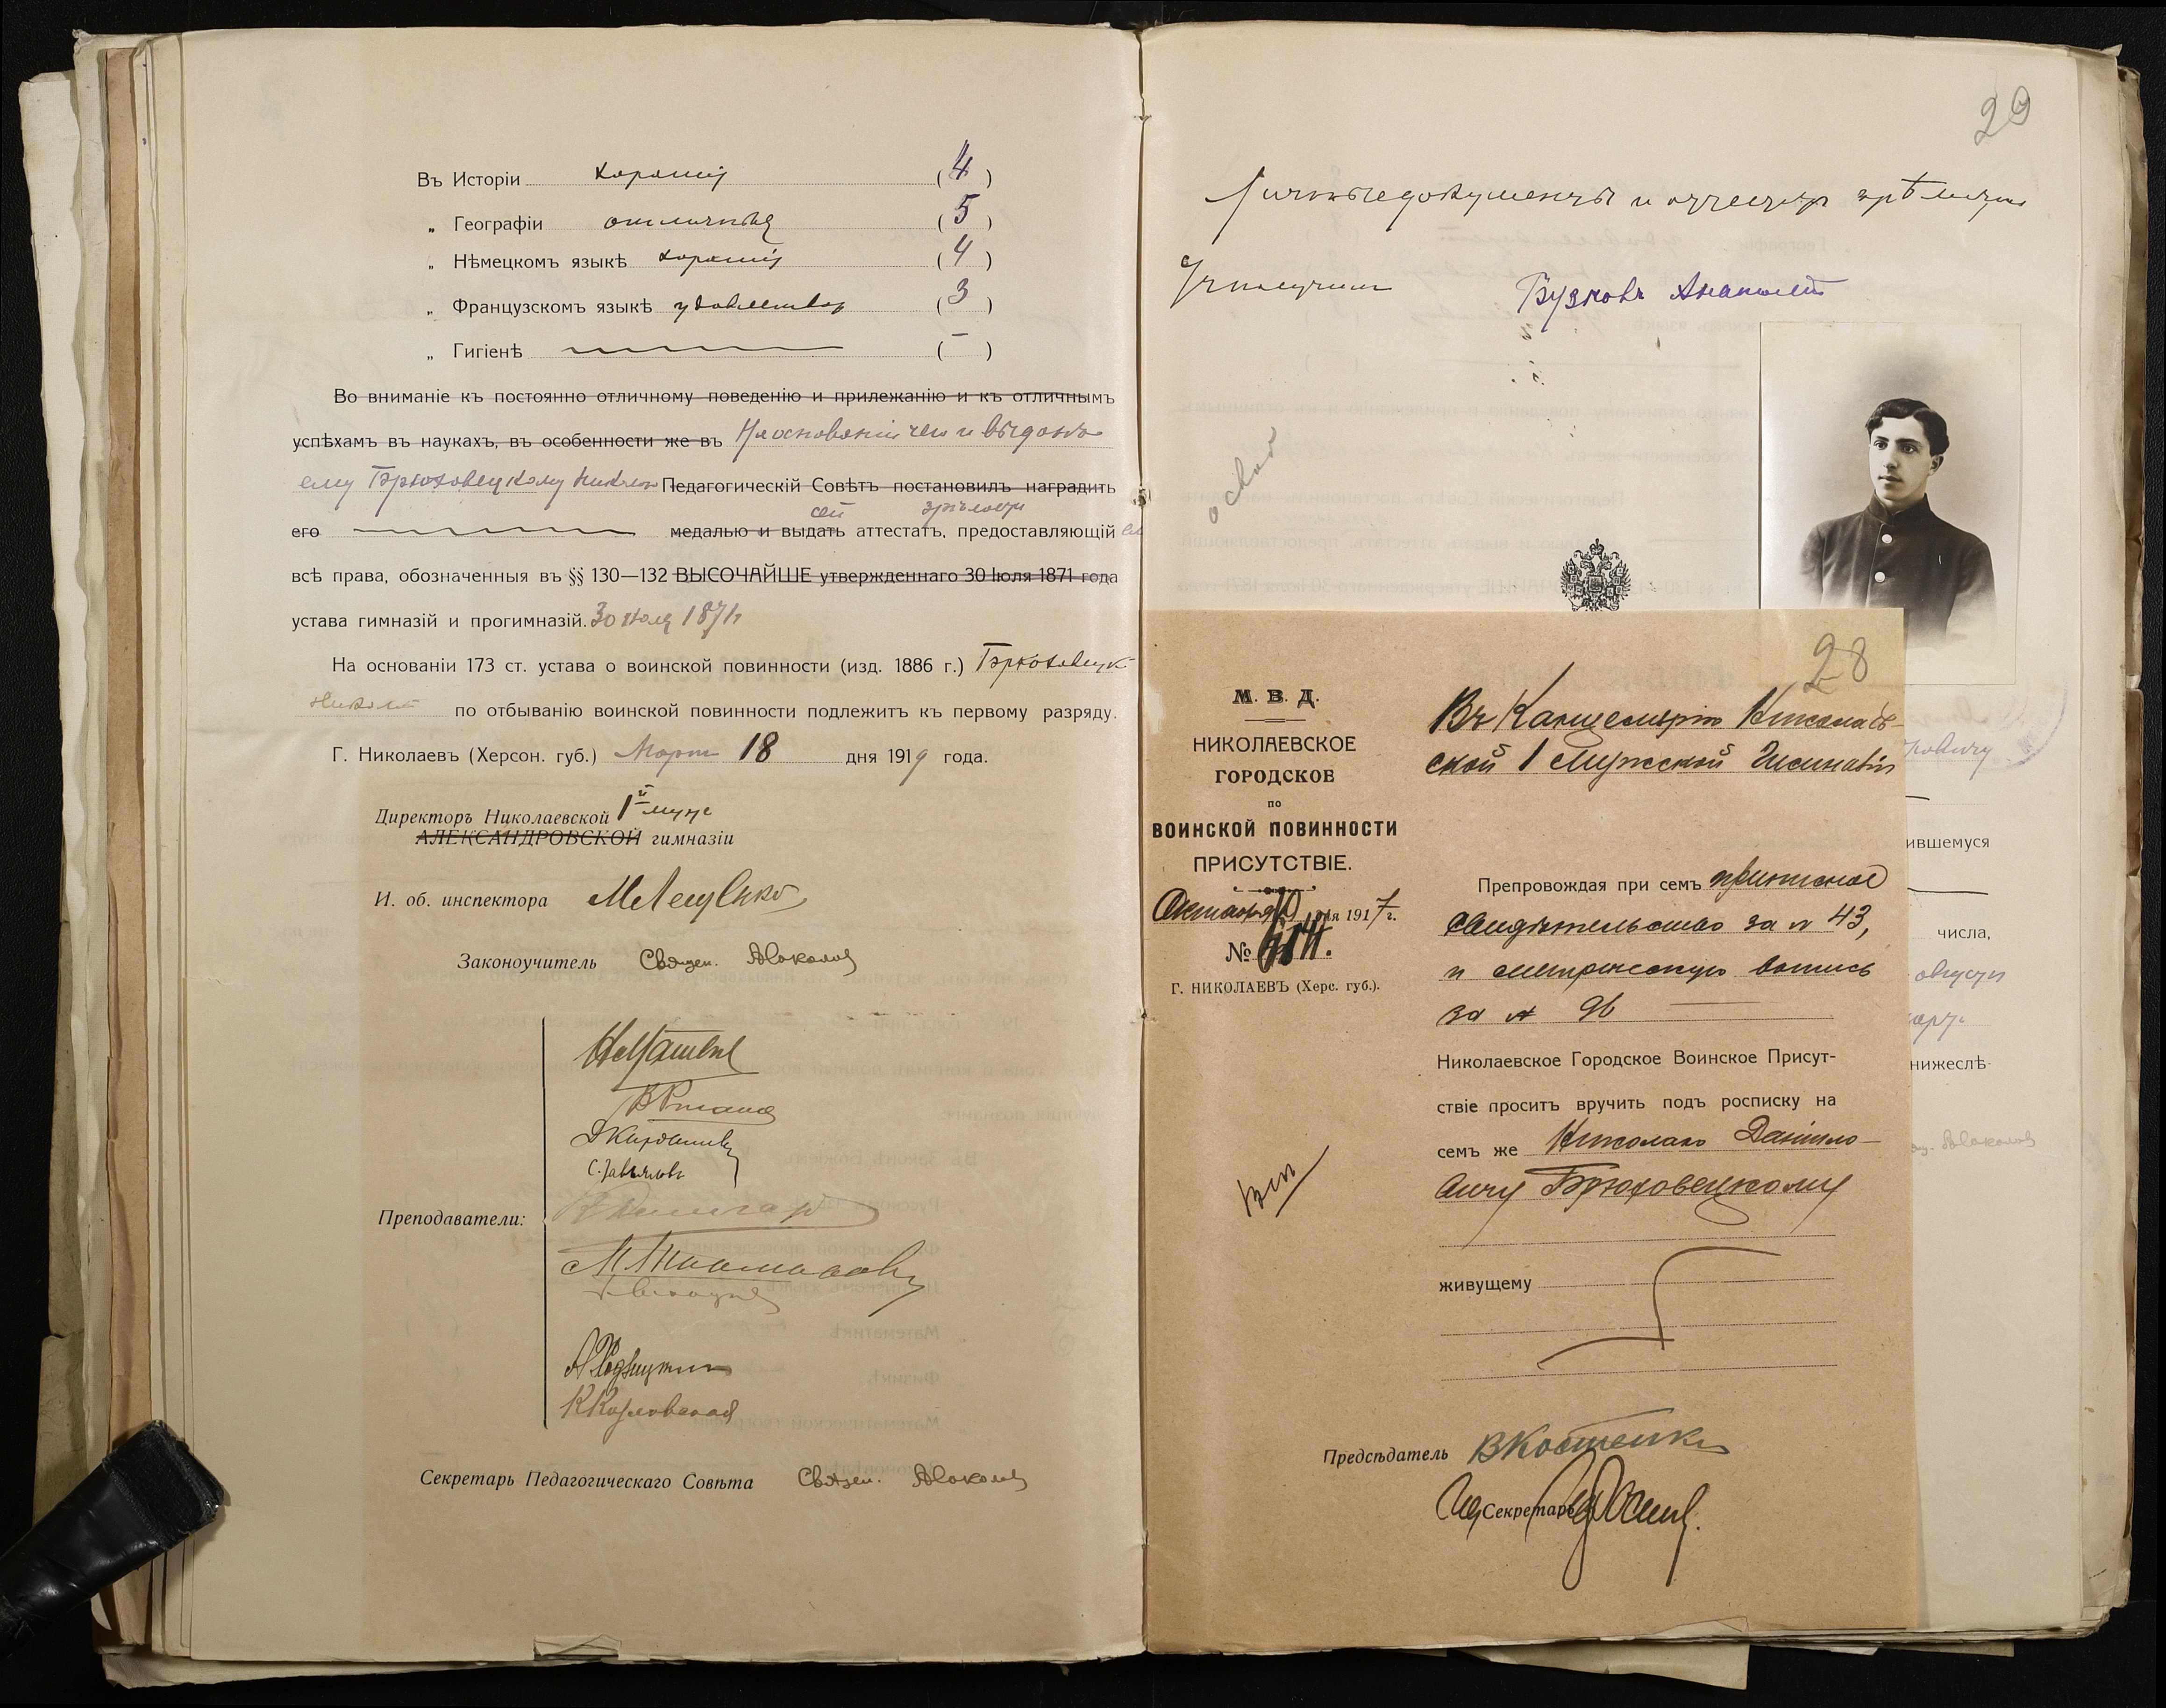 Въ Исторіи хорошія (4)
„ Географіи отличныя (5)
„ Нѣмецкомъ языкѣ хорошія (4)
„ Французскомъ языкѣ удовлетвор (3)
„ Гигіенѣ (—)
Во вниманіе къ постоянно отличному поведенію и прилежанію и къ отличнымъ
успѣхамъ въ наукахъ, въ особенности же въ На основаніи чего и выданъ
ему Брюховецкому Николаю Педагогическій Совѣтъ постановилъ наградить
сей зрѣлости
его медалью и выдать аттестатъ, предоставляющій
всѣ права, обозначенныя въ §§ 130—132 ВЫСОЧАЙШЕ утвержденнаго 30 Іюля 1871 года
устава гимназій и прогимназій. 30 Іюля 1871 г
На основаніи 173 ст. устава о воинской повинности (изд. 1886 г.) Брюховецк
Никола по отбыванію воинской повинности подлежитъ къ первому разряду.
Г. Николаевъ (Херсон. губ.) Март 18 дня 1919 года.
Директоръ Николаевской 1й муж
АЛЕКСАНДРОВСКОЙ гимназіи
И. об. инспектора
Законоучитель Свящ.
С. Завьяловъ
Преподаватели:
К Козловская
Секретарь Педагогическаго Совѣта Свящ.
29
Личные документы и аттестат зрѣлости
получил Бузковъ Анатолій
28
М. В. Д.
НИКОЛАЕВСКОЕ
ГОРОДСКОЕ
по
ВОИНСКОЙ ПОВИННОСТИ
ПРИСУТСТВІЕ.
Октября 10 дня 1917 г.
№ 614.
Г. НИКОЛАЕВЪ (Херс. губ.).
Въ Канцелярію Николаев-
ской 1 Мужской Гимназіи
Препровождая при семъ приписное
свидѣтельство за № 43,
и метрическую выпись
за № 96
Николаевское Городское Воинское Присут-
ствіе проситъ вручить подъ росписку на
семъ же Николаю Даніило-
вичу Брюховецкому
живущему
Предсѣдатель В Костенко
Секретарь
ившемуся
числа,
августа
нижеслѣ-